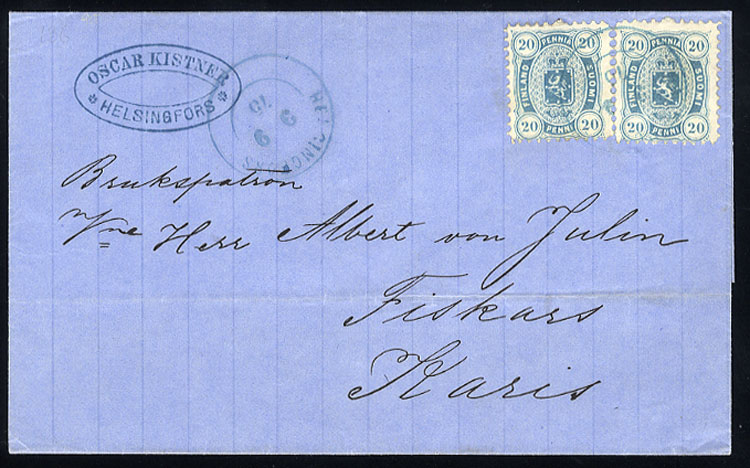 OSCAR KISTNER
HELSINGFORS
HELSINGFORS
9 9
75
20 PENNIÄ 20
FINLAND SUOMI
20 PENNI 20
20 PENNIÄ 20
FINLAND SUOMI
20 PENNI 20
Brukspatron
Herr Albert von Julin
Fiskars
Karis